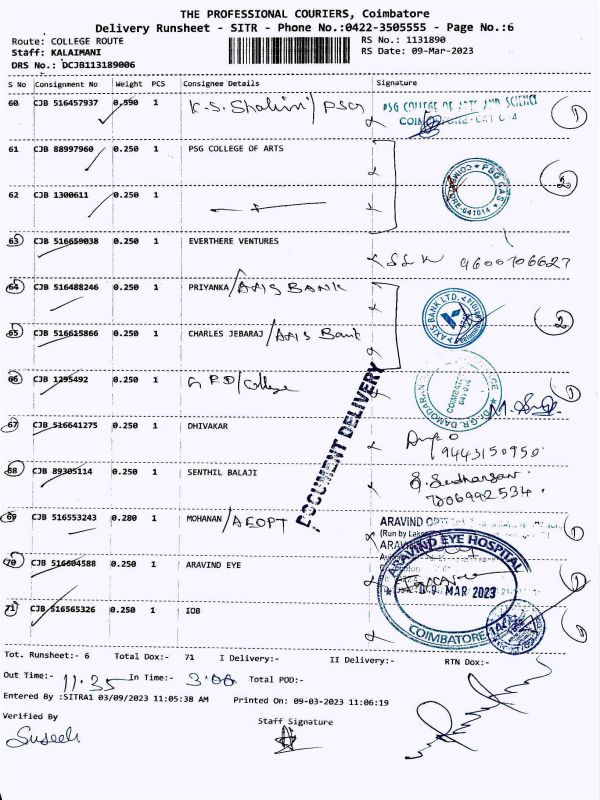 THE PROFESSIONAL COURIERS, Coimbatore
Delivery Runsheet - SITR - Phone No.:0422-3505555 - Page No.:6
Route: COLLEGE ROUTE RS No.: 1131890
Staff: KALAIMANI RS Date: 09-Mar-2023
DRS No.: DCJB113189006
S No Consignment No Weight PCS Consignee Details Signature
60 CJB 516457937 0.590 1 K.S. Shalini / PSG PSG COLLEGE OF ARTS AND SCIENCE 1
61 CJB 88997960 0.250 1 PSG COLLEGE OF ARTS
62 CJB 1300611 0.250 1 PSG CAS COIMBATORE-641014 2
63 CJB 516659038 0.250 1 EVERTHERE VENTURES 9600706627
64 CJB 516488246 0.250 1 PRIYANKA / AXIS BANK AXIS BANK LTD. 2
65 CJB 516615866 0.250 1 CHARLES JEBARAJ / AXIS Bank
66 CJB 1295492 0.250 1 GRD / College Dr. G.R. DAMODARAN COLLEGE COIMBATORE 641014 1
67 CJB 516641275 0.250 1 DHIVAKAR 9443150950
68 CJB 89305114 0.250 1 SENTHIL BALAJI S. Sudharsan
DOCUMENT DELIVERY
69 CJB 516553243 0.280 1 MOHANAN / ARAVIND 1
70 CJB 516604588 0.250 1 ARAVIND EYE ARAVIND EYE HOSPITAL 09 MAR 2023 COIMBATORE 1
71 CJB 516565326 0.250 1 IOB 1
Tot. Runsheet:- 6 Total Dox:- 71 I Delivery:- II Delivery:- RTN Dox:-
Out Time:- 11.35 In Time:- 3.00 Total POD:-
Entered By :SITRA1 03/09/2023 11:05:38 AM Printed On: 09-03-2023 11:06:19
Verified By Staff Signature
Suseela